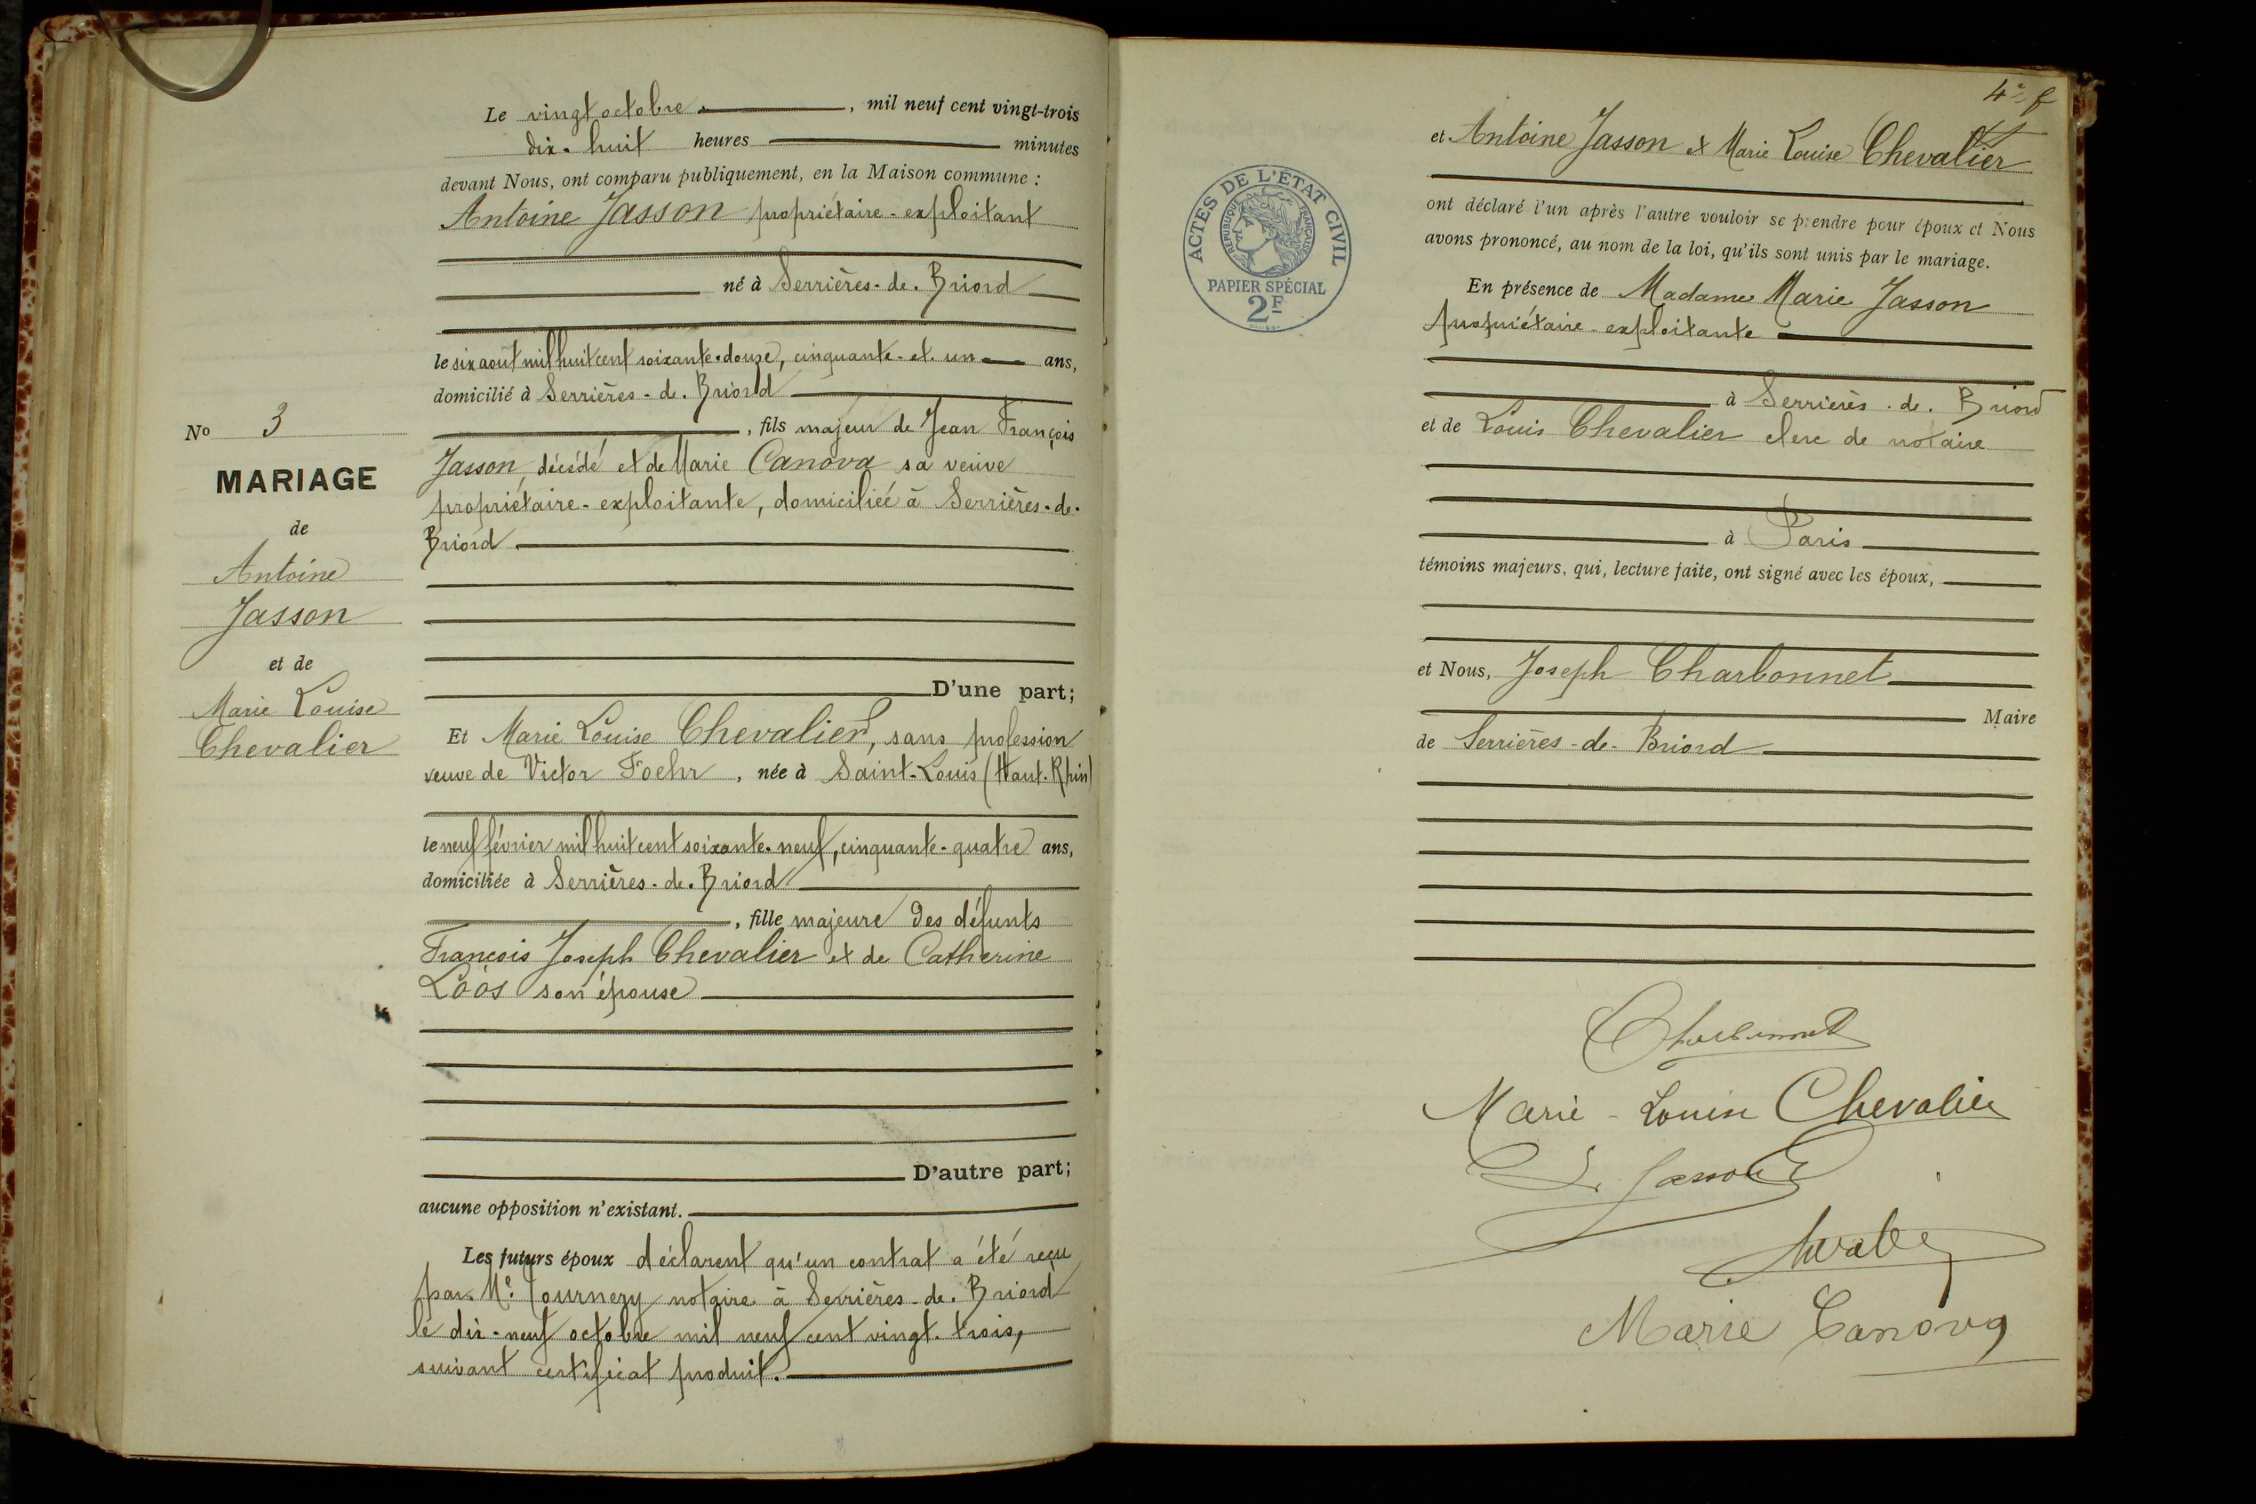 Le vingt octobre, mil neuf cent vingt-trois
dix-huit heures minutes
devant Nous, ont comparu publiquement, en la Maison commune :
Antoine Jasson propriétaire-exploitant
né à Serrières-de-Briord
le six août mil huit cent soixante-douze, cinquante-et-un ans,
domicilié à Serrières-de-Briord
, fils majeur de Jean François
Jasson, décédé et de Marie Canova sa veuve
propriétaire-exploitante, domiciliée à Serrières-de-
Briord
D'une part;
No 3
MARIAGE
de
Antoine
Jasson
et de
Marie Louise
Chevalier
Et Marie Louise Chevalier, sans profession
veuve de Victor Foehr, née à Saint-Louis (Haut-Rhin)
le neuf février mil huit cent soixante-neuf, cinquante-quatre ans,
domiciliée à Serrières-de-Briord
, fille majeure des défunts
François Joseph Chevalier et de Catherine
Loos son épouse
D'autre part;
aucune opposition n'existant.
Les futurs époux déclarent qu'un contrat a été reçu
par Me Tournery notaire à Serrières-de-Briord
le dix-neuf octobre mil neuf cent vingt-trois,
suivant certificat produit.
ACTES DE L'ETAT CIVIL
REPUBLIQUE FRANÇAISE
PAPIER SPÉCIAL
2F
et Antoine Jasson et Marie Louise Chevalier
ont déclaré l'un après l'autre vouloir se prendre pour époux et Nous
avons prononcé, au nom de la loi, qu'ils sont unis par le mariage.
En présence de Madame Marie Jasson
propriétaire-exploitante
à Serrières-de-Briord
et de Louis Chevalier clerc de notaire
à Paris
témoins majeurs, qui, lecture faite, ont signé avec les époux,
et Nous, Joseph Charbonnet
Maire
de Serrières-de-Briord
Charbonnet
Marie-Louise Chevalier
Jasson
Chevalier
Marie Canova